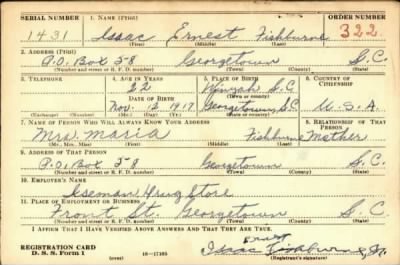 SERIAL NUMBER 1. NAME (Print) ORDER NUMBER
1431 Isaac Ernest Fishburne 322
(First) (Middle) (Last)
2. ADDRESS (Print)
P.O. Box 58 Georgetown S.C.
(Number and street or R. F. D. number) (Town) (County) (State)
3. TELEPHONE 4. AGE IN YEARS 5. PLACE OF BIRTH 6. COUNTRY OF CITIZENSHIP
22 Winyah S.C.
DATE OF BIRTH (Town or county)
Nov. 12 1917 Georgetown, S.C. U.S.A.
(Exchange) (Number) (Mo.) (Day) (Yr.) (State or country)
7. NAME OF PERSON WHO WILL ALWAYS KNOW YOUR ADDRESS 8. RELATIONSHIP OF THAT PERSON
Mrs. Maria Fishburne Mother
(Mr., Mrs., Miss) (First) (Middle) (Last)
9. ADDRESS OF THAT PERSON
P.O. Box 58 Georgetown S.C.
(Number and street or R. F. D. number) (Town) (County) (State)
10. EMPLOYER'S NAME
Iseman Drug Store
11. PLACE OF EMPLOYMENT OR BUSINESS
Front St. Georgetown S.C.
(Number and street or R. F. D. number) (Town) (County) (State)
I AFFIRM THAT I HAVE VERIFIED ABOVE ANSWERS AND THAT THEY ARE TRUE.
Ernest
REGISTRATION CARD Isaac Fishburne, Jr.
D. S. S. Form 1 (over) 16—17105 (Registrant's signature)